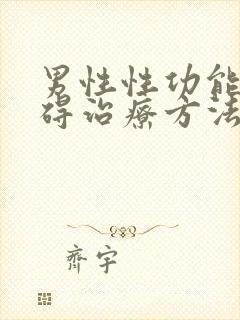 男性性功能
碍治疗方法
齐宇